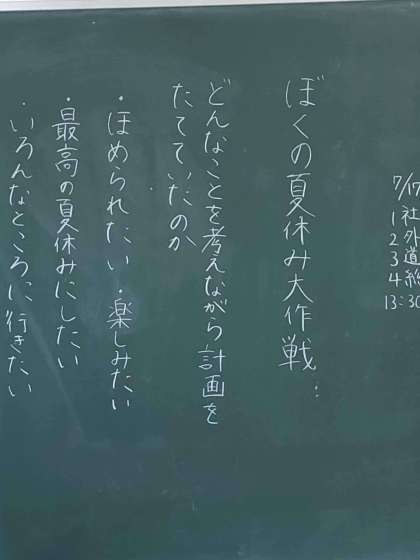 7/17
1 社
2 外
3 道
4 総
13:30
ぼくの夏休み大作戦
どんなことを考えながら計画を
たてていたのか
・ほめられたい・楽しみたい
・最高の夏休みにしたい
・いろんなところに行きたい